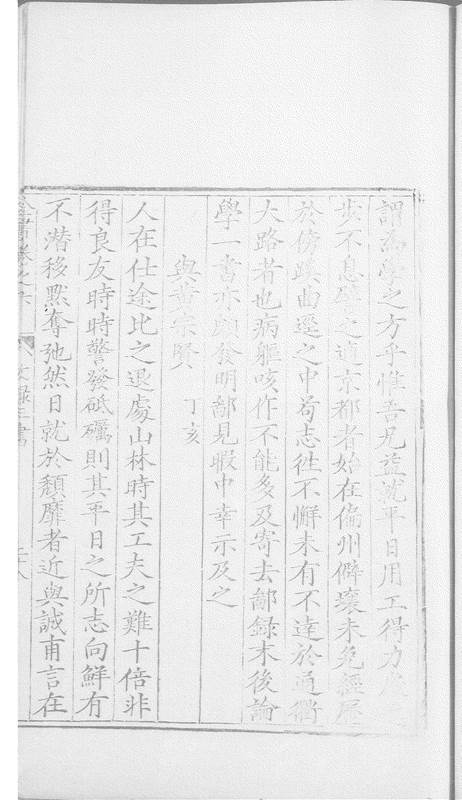 謂為學之方乎惟吾兄益就平日用工得力處
步不息譬之適京都者始在偏州僻壤未免經歷
於傍蹊曲逕之中茍志徃不懈未有不達於通衢
大路者也病軀咳作不能多及寄去鄙錄末後論
學一書亦頗發明鄙見暇中幸示及之
與黃宗賢 丁亥
人在仕途比之退處山林時其工夫之難十倍非
得良友時時警發砥礪則其平日之所志向鮮有
不潜移黙奪弛然日就於頹靡者近與誠甫言在